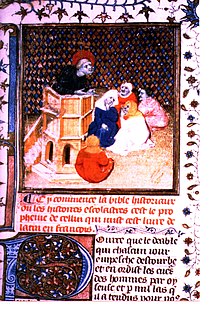 Cy commence la bible historiaux
ou les histoires escolastres cest le pro
heme de cellui qui mist cest livre de
latin en francois.
Pour ce que le deable
qui chascun iour
empesche destourbe
et en ordist les cuers
des hommes par oy
seuse et par mil las q
il a tendus pour nos